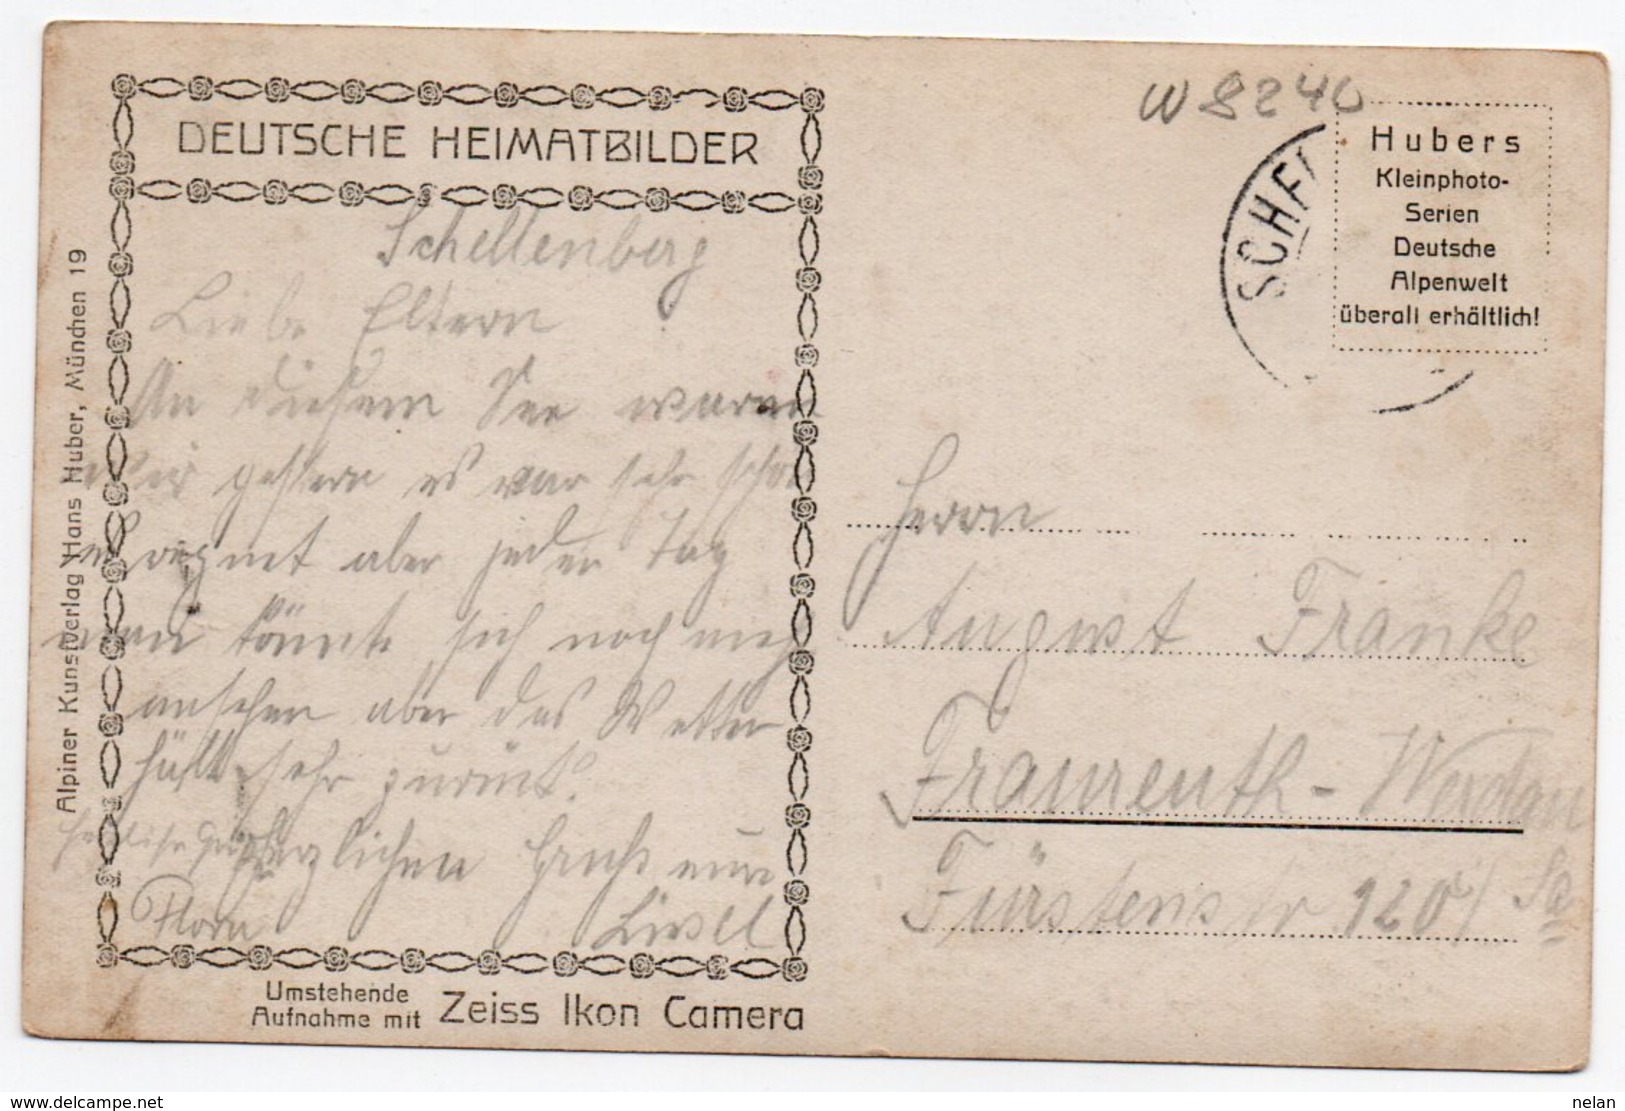 DEUTSCHE HEIMATBILDER
Schellenberg
Liebe Eltern
An diesem See waren
wir gestern es war sehr schön
es regnet aber jeden Tag
man könnte sich noch mehr
ansehen aber das Wetter
hält sehr zurück.
herzlichen Gruß eure
Liesel
Umstehende
Aufnahme mit Zeiss Ikon Camera
Alpiner Kunstverlag Hans Huber, München 19
W 8240
SCHEL
Hubers
Kleinphoto-
Serien
Deutsche
Alpenwelt
überall erhältlich!
Herrn
August Franke
Fraureuth - Werdau
Fürstenstr. 120 / Sa
delcampe.net
nelan